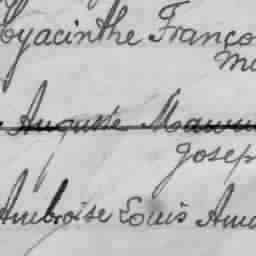 Hyacinthe Franço
Ma
Auguste Maxim
Josep
Ambroise Louis Ama